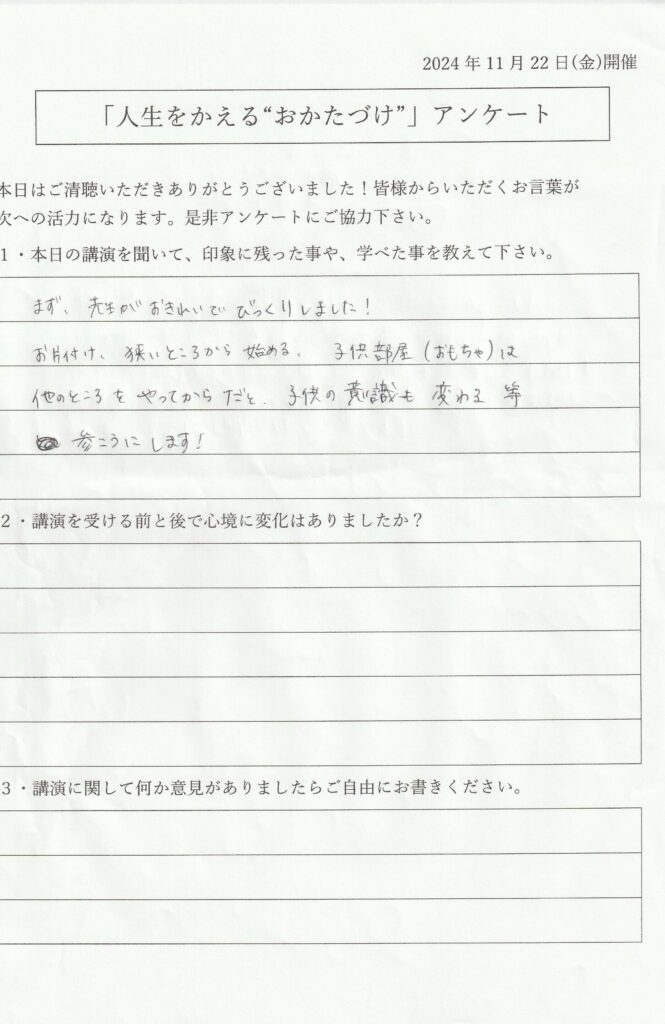 2024年11月22日(金)開催
「人生をかえる“おかたづけ”」アンケート
本日はご清聴いただきありがとうございました！皆様からいただくお言葉が
次への活力になります。是非アンケートにご協力下さい。
1・本日の講演を聞いて、印象に残った事や、学べた事を教えて下さい。
まず、先生がおきれいでびっくりしました！
お片付け、狭いところから始める、子供部屋（おもちゃ）は
他のところをやってからだと、子供の意識も変わる等
参こうにします！
2・講演を受ける前と後で心境に変化はありましたか？
3・講演に関して何か意見がありましたらご自由にお書きください。